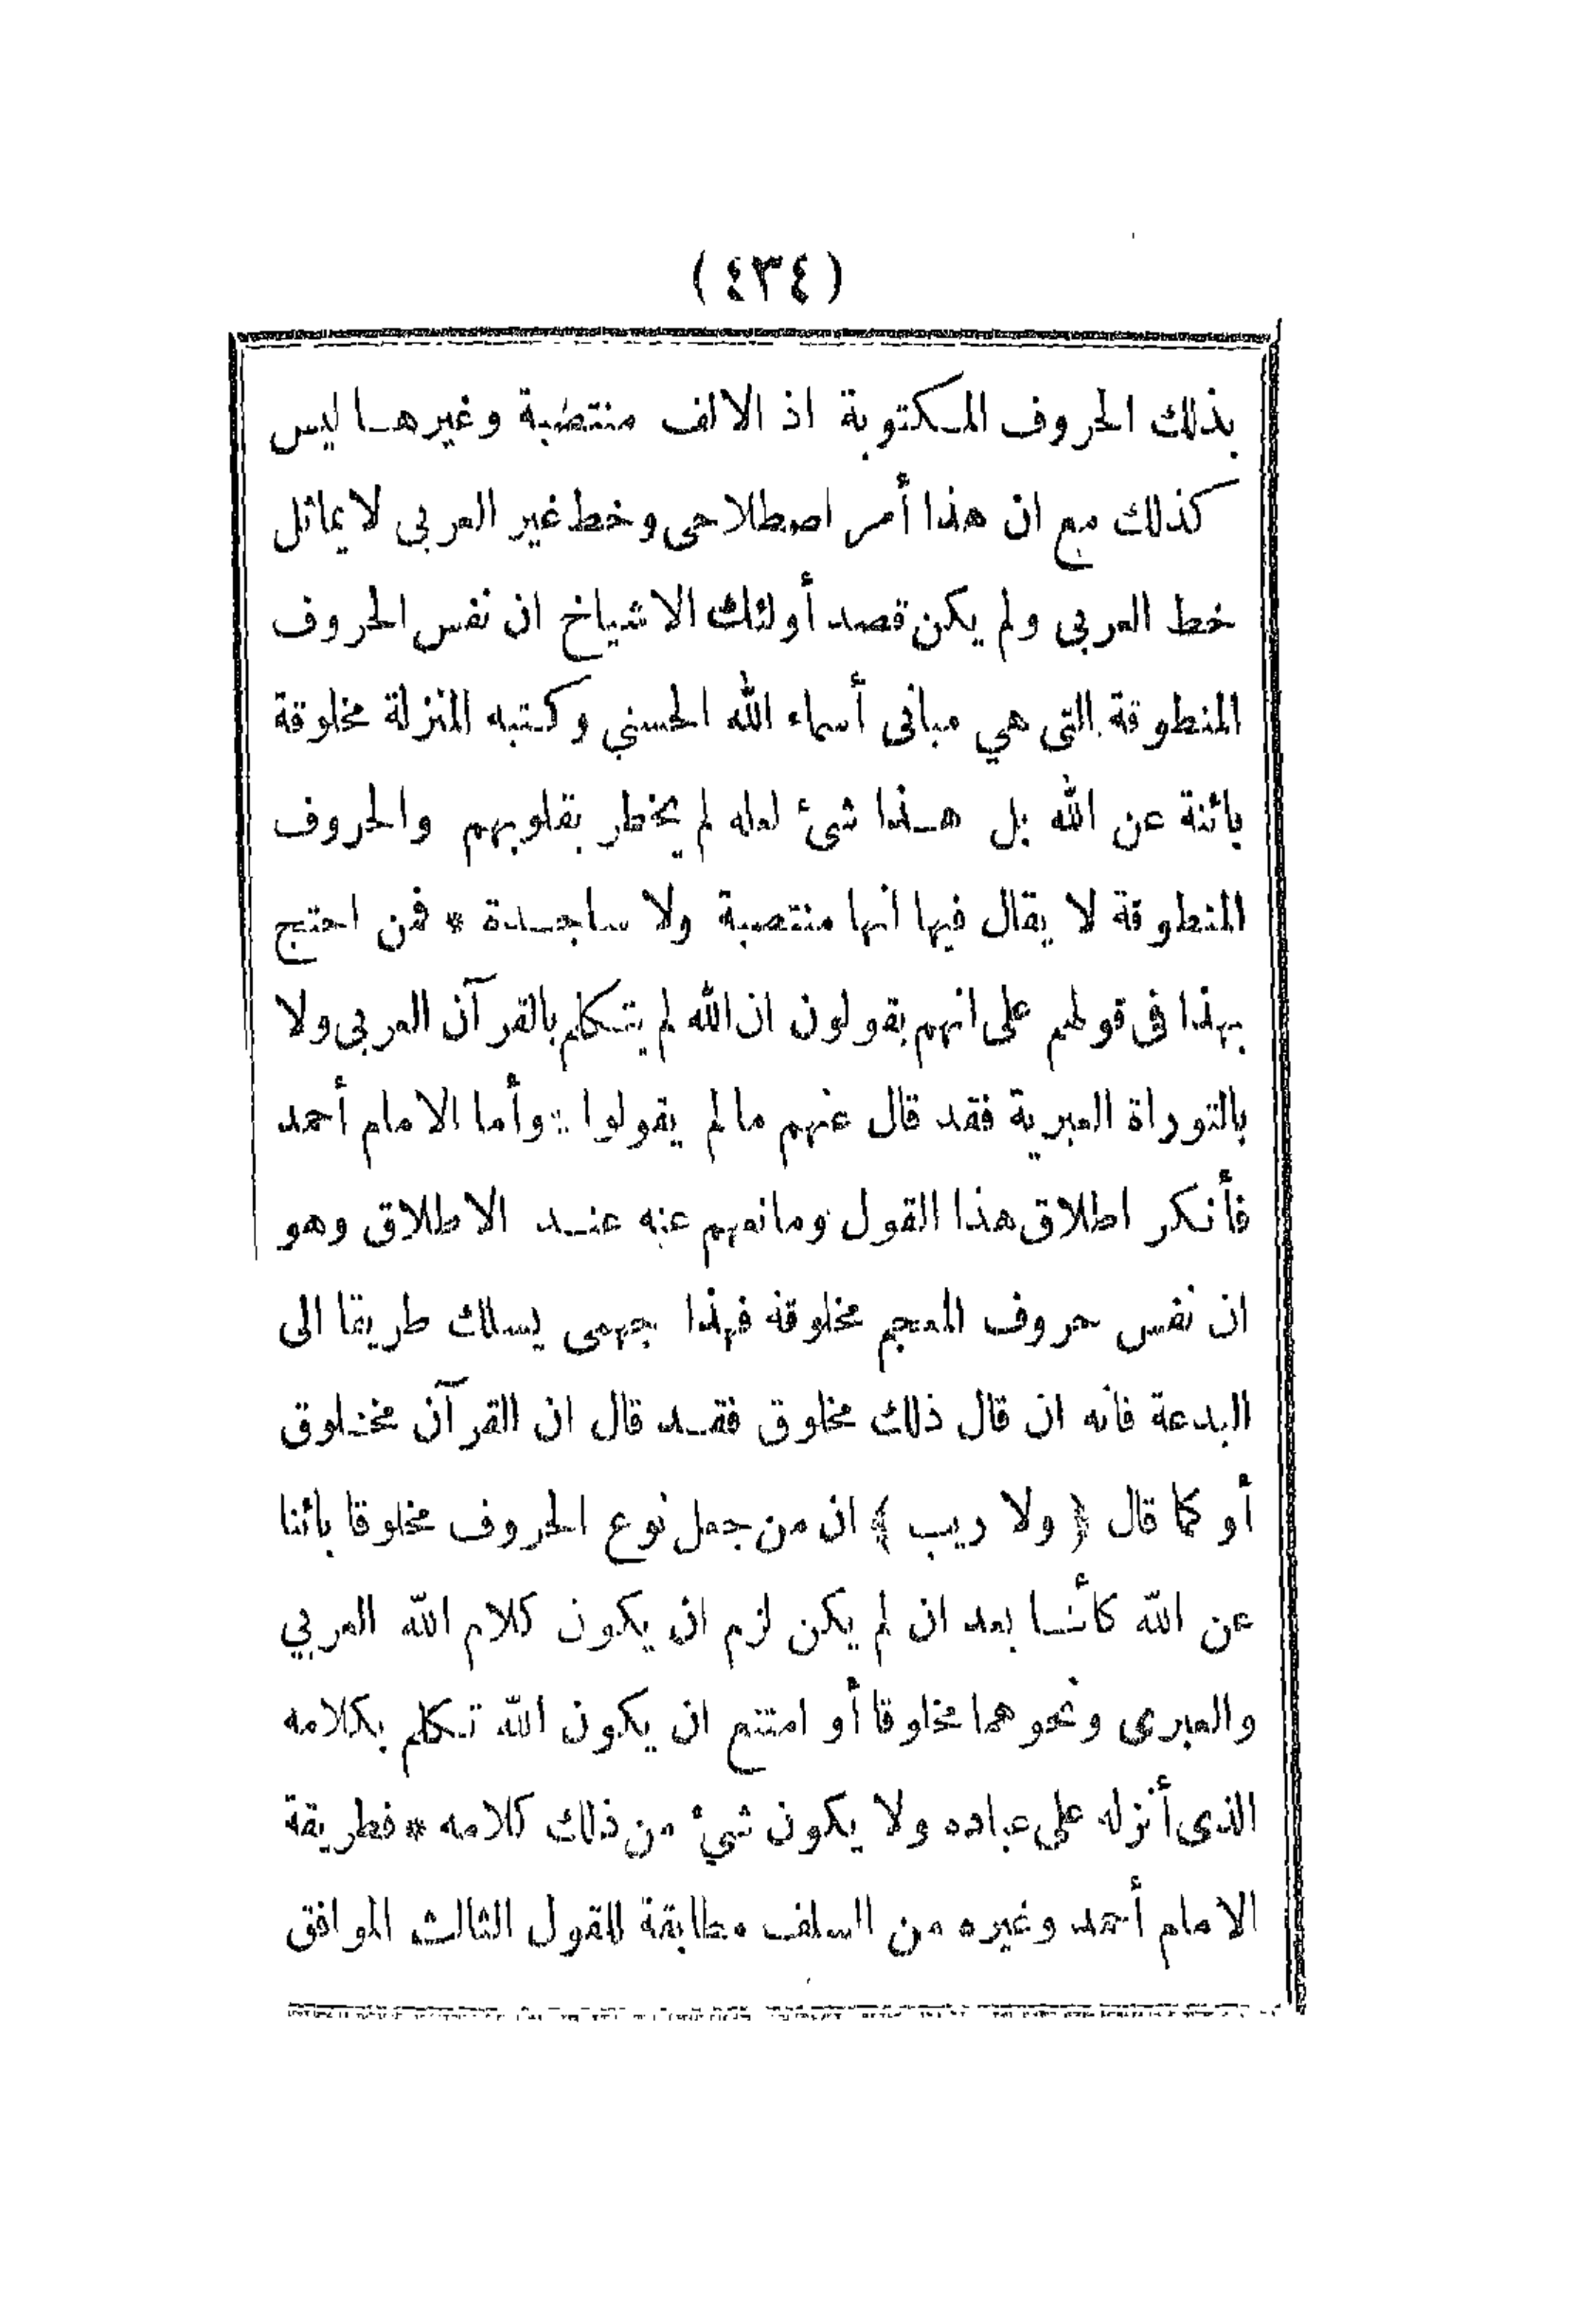 (٤٣٤)
بذلك الحروف المكتوبة اذ الالف منتصبة وغيرها ليس
كذلك مع ان هذا أمر اصطلاحى وخط غير العربى لا يماثل
خط العربى ولم يكن قصد أولئك الاشياخ ان نفس الحروف
المنطوقة التى هي مبانى أسماء الله الحسني وكتبه المنزلة مخلوقة
بائنة عن الله بل هذا شئ لعله لم يخطر بقلوبهم والحروف
المنطوقة لا يقال فيها انها منتصبة ولا ساجدة * فمن احتج
بهذا فى قولهم على انهم يقولون ان الله لم يتكلم بالقرآن العربى ولا
بالتوراة العبرية فقد قال عنهم مالم يقولوا * وأما الامام أحمد
فأنكر اطلاق هذا القول ومانعهم عنه عند الاطلاق وهو
ان نفس حروف المعجم مخلوقة فهذا جهمى يسلك طريقا الى
البدعة فانه ان قال ذلك مخلوق فقد قال ان القرآن مخلوق
أو كما قال ﴿ ولا ريب ﴾ ان من جعل نوع الحروف مخلوقا بائنا
عن الله كائنا بعد ان لم يكن لزم ان يكون كلام الله العربي
والعبرى ونحوهما مخلوقا أو امتنع ان يكون الله تكلم بكلامه
الذى أنزله على عباده ولا يكون شئ من ذلك كلامه * فطريقة
الامام أحمد وغيره من السلف مطابقة للقول الثالث الموافق